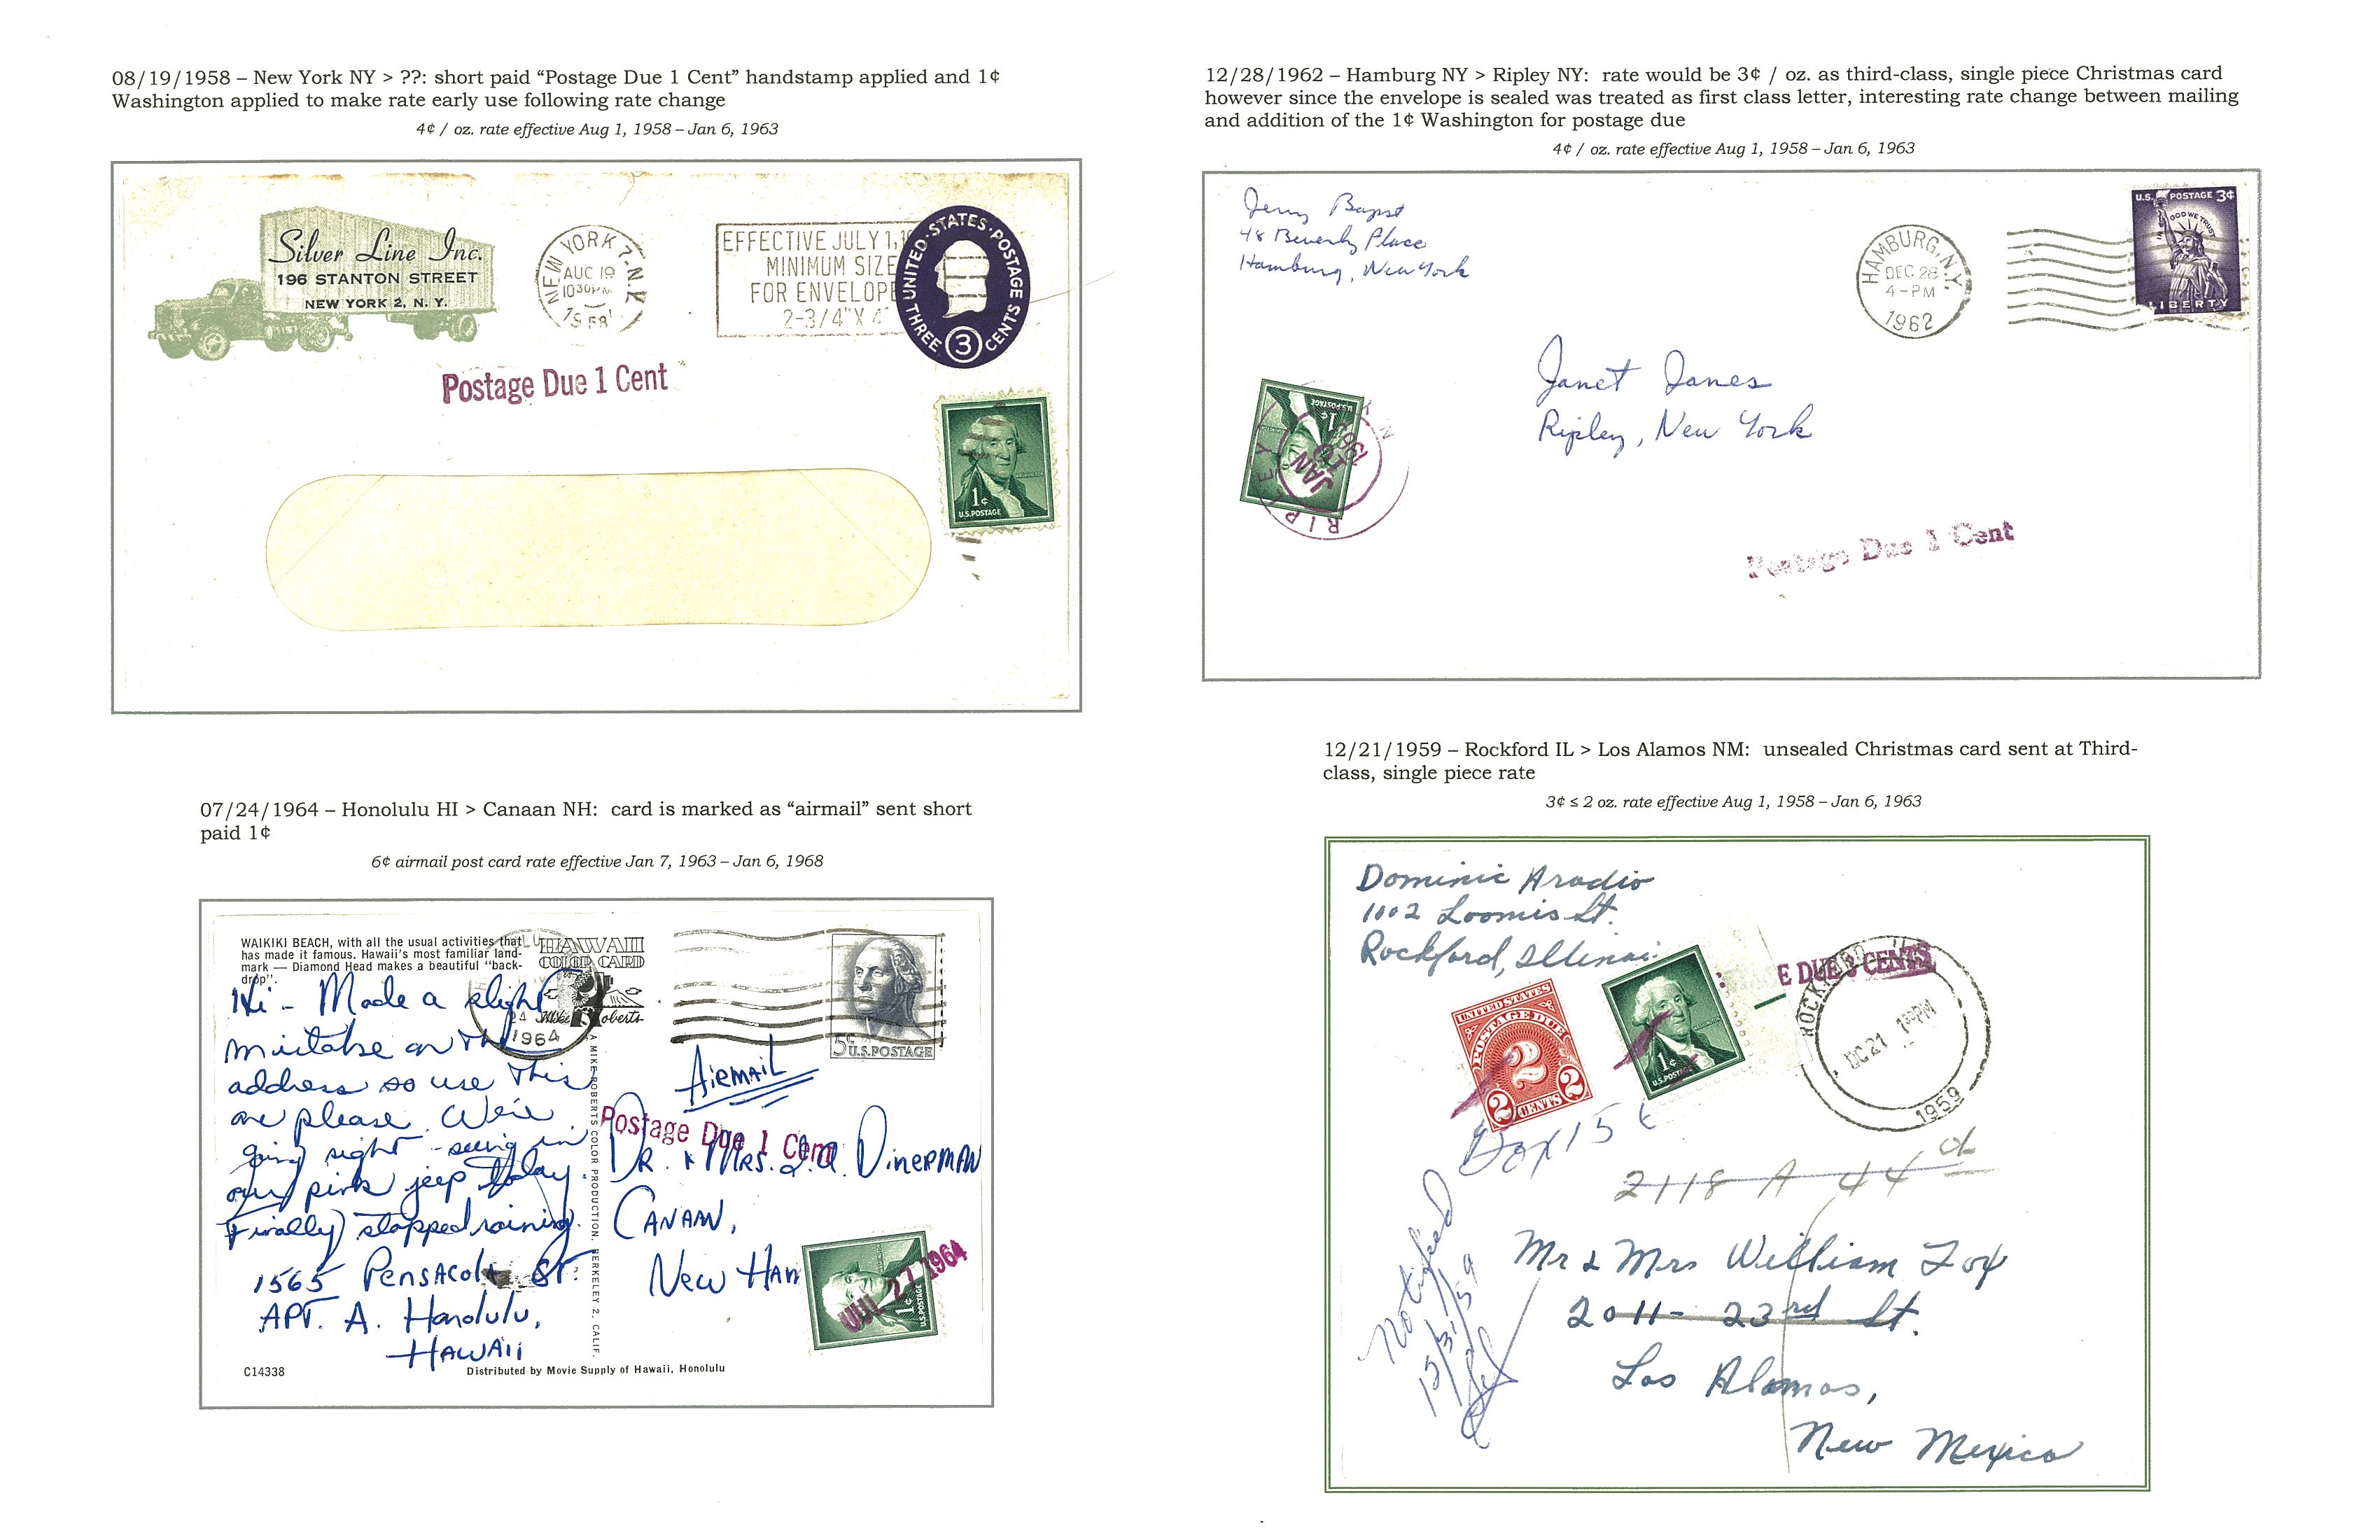 08/19/1958 – New York NY > ??: short paid “Postage Due 1 Cent” handstamp applied and 1¢
Washington applied to make rate early use following rate change
4¢ / oz. rate effective Aug 1, 1958 – Jan 6, 1963
Silver Line Inc.
196 STANTON STREET
NEW YORK 2, N. Y.
NEW YORK 7, N.Y.
AUG 19
10 30 PM
1958
EFFECTIVE JULY 1, 1
MINIMUM SIZE
FOR ENVELOPE
2-3/4"X 4"
UNITED·STATES·POSTAGE
THREE 3 CENTS
Postage Due 1 Cent
1¢
U.S. POSTAGE
12/28/1962 – Hamburg NY > Ripley NY: rate would be 3¢ / oz. as third-class, single piece Christmas card
however since the envelope is sealed was treated as first class letter, interesting rate change between mailing
and addition of the 1¢ Washington for postage due
4¢ / oz. rate effective Aug 1, 1958 – Jan 6, 1963
Jerry Bapst
48 Beverly Place
Hamburg, New York
HAMBURG, N.Y.
DEC 28
4-PM
1962
U.S. POSTAGE 3¢
IN GOD WE TRUST
LIBERTY
Janet Janes
Ripley, New York
1¢
U.S. POSTAGE
RIPLEY N
JAN
10
1963
Postage Due 1 Cent
07/24/1964 – Honolulu HI > Canaan NH: card is marked as “airmail” sent short
paid 1¢
6¢ airmail post card rate effective Jan 7, 1963 – Jan 6, 1968
WAIKIKI BEACH, with all the usual activities that
has made it famous. Hawaii's most familiar land-
mark — Diamond Head makes a beautiful "back-
drop".
HAWAII
COLOR CARD
Mike Roberts
24
1964
5¢ U.S. POSTAGE
Hi - Made a slight
mistake on the
address so use this
one please. We're
going sight-seeing in
our pink jeep today.
(Finally) stopped raining.
1565 PENSACOLA ST.
APT. A. Honolulu,
HAWAII
A MIKE ROBERTS COLOR PRODUCTION. BERKELEY 2. CALIF.
AIRMAIL
Postage Due 1 Cent
DR. & MRS. DINERMAN
CANAAN,
NEW HAM
1¢
U.S. POSTAGE
JUL 27 1964
C14338
Distributed by Movie Supply of Hawaii, Honolulu
12/21/1959 – Rockford IL > Los Alamos NM: unsealed Christmas card sent at Third-
class, single piece rate
3¢ ≤ 2 oz. rate effective Aug 1, 1958 – Jan 6, 1963
Dominic Aradio
1002 Loomis St.
Rockford, Illinois
E DUE 3 CENTS
UNITED STATES
POSTAGE DUE
2
2 CENTS 2
1¢
U.S. POSTAGE
ROCKFORD
DC 21
PM
1959
2118 A 44
Notified
12/31/59
Mr & Mrs William Fox
2011- 23rd St.
Los Alamos,
New Mexico